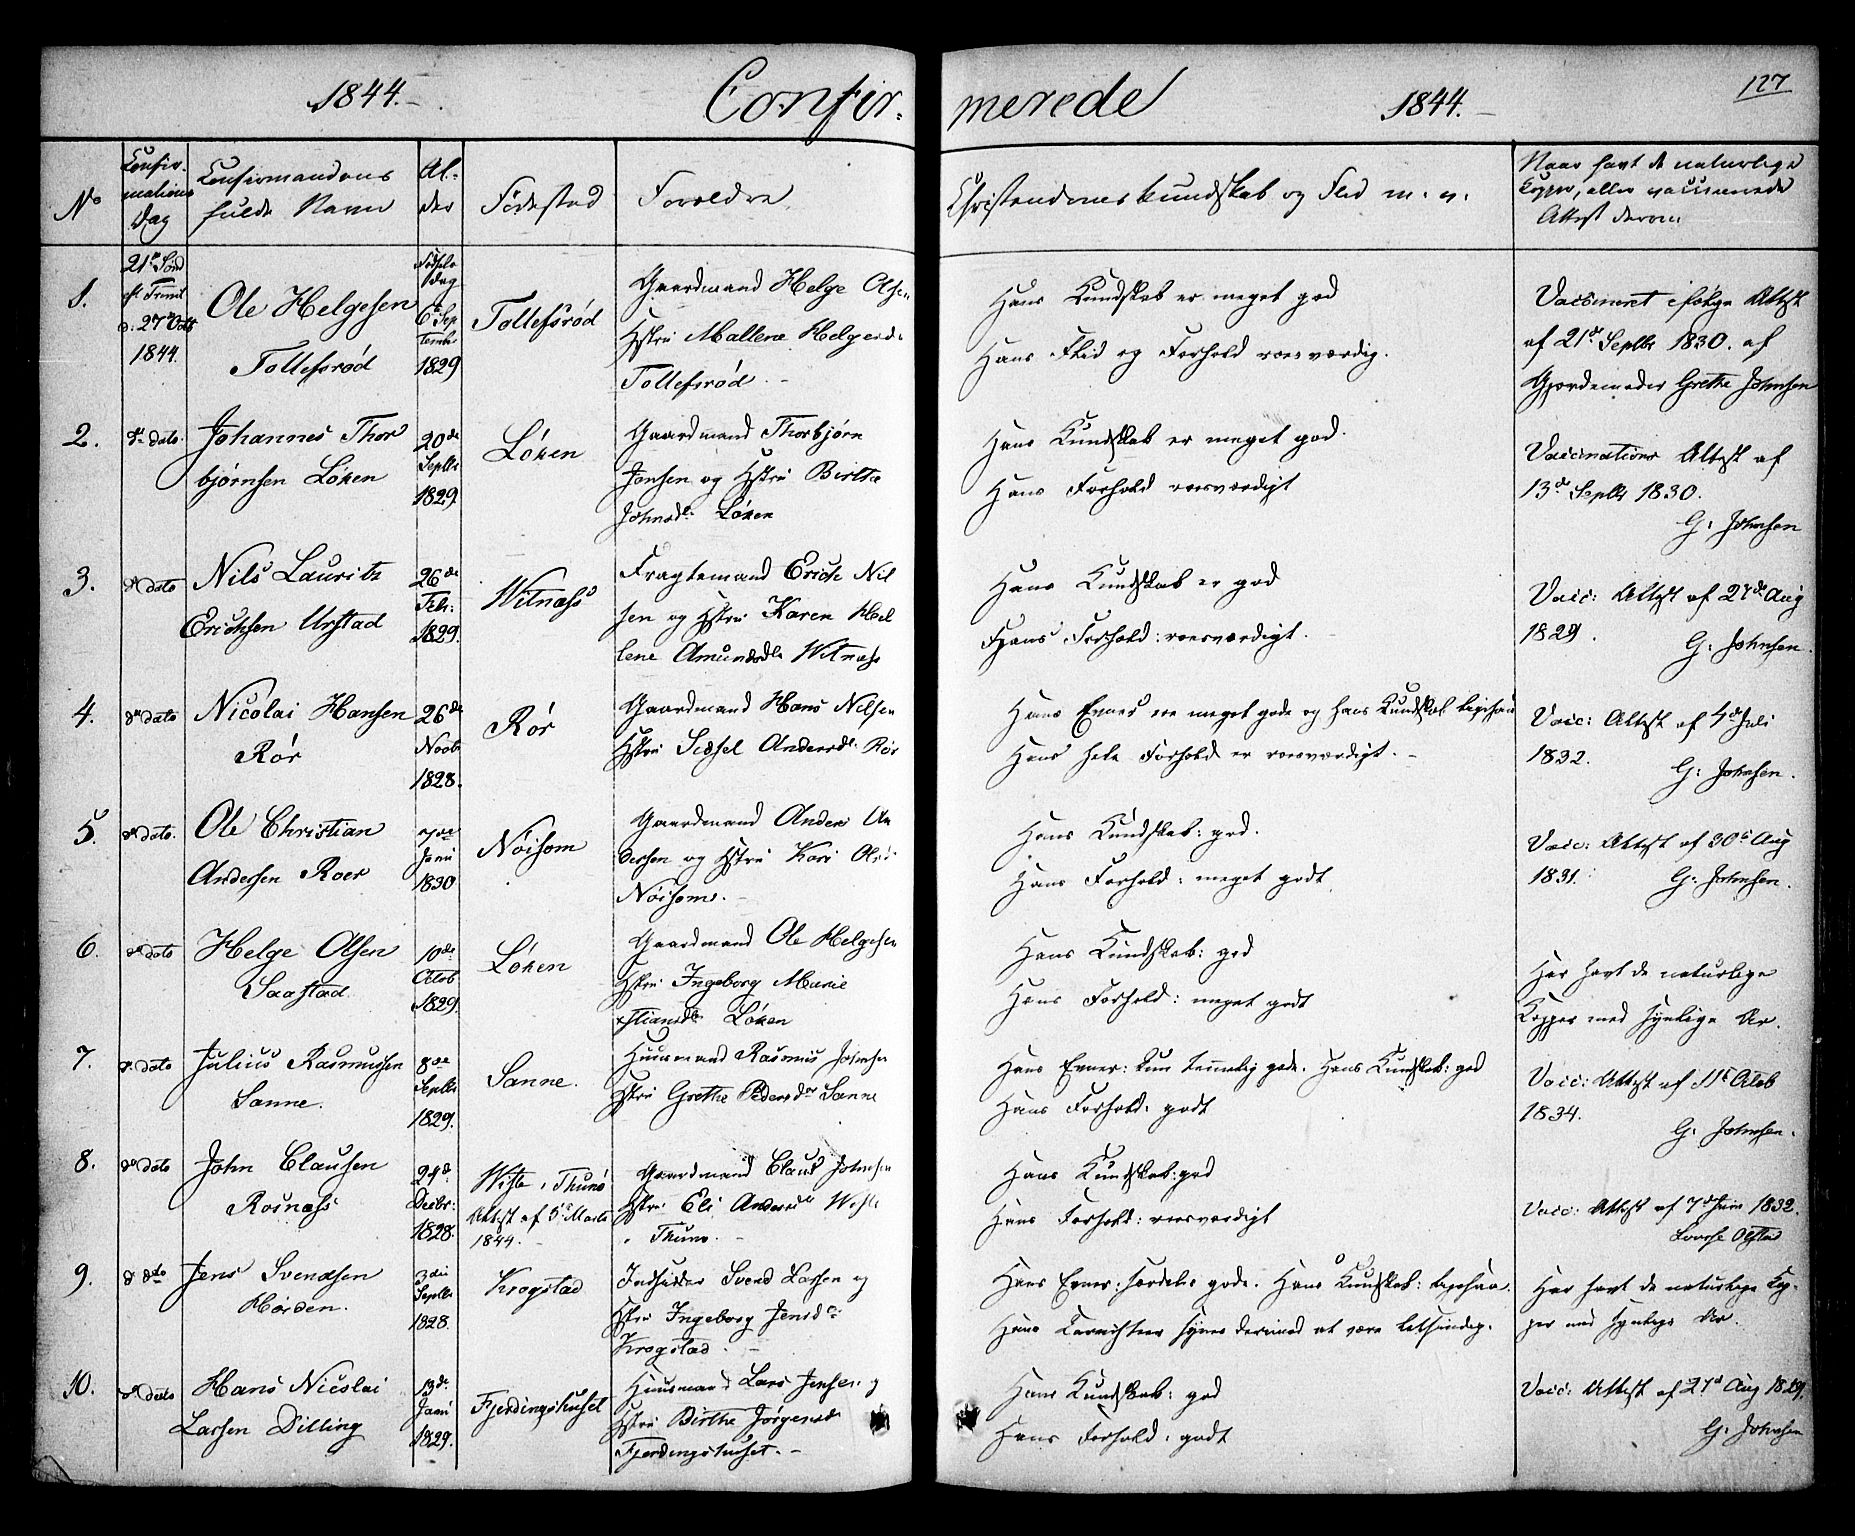 1844.–
Confir.
merede
1844.–
127
No
Confir-
mations
Dag
Confirmandens
fulde Navn
Al-
der
Födestad
Forældre
Christendomskundskab og Flid m. v.
Naar havt de naturlige
Kopper, eller vaccinerede
Attest derom
1.
21de Sönd
eft Trinit
o: 27de Octb
1844.
Ole Helgesen
Tollefsröd
Födsels
Dag
6te Sep
tember
1829
Tollefsröd
Gaardmand Helge Olsen
Hstru Mallene Helgesd.
Tollefsröd.–
Hans Kundskab er meget god
Hans Flid og Forhold roesværdig.
Vaccineret ifölge Attest
af 21de Septbr 1830. af
Gjordemoder Grethe Johnsen
2.
do dato.
Johannes Thor
bjørnsen Löken
20de
Septbr
1829.
Löken
Gaardmand Thorbjörn
Jensen og Hstru Birthe
Johnsdr Löken
Hans Kundskab er meget god.
Hans Forhold roesværdigt
Vaccinations Attest af
13de Septbr 1830.
G: Johnsen
3.
do dato
Nils Lauritz
Erichsen Urstad
26de
Febr:
1829.
Witnæss
Fragtemand Erich Nil
sen og Hstru Karen Hel
lene Amundsdr Witnæss
Hans Kundskab er god
Hans Forhold: roesværdigt.
Vacc: Attest af 27de Aug
1829.
G: Johnsen.
4.
do dato
Nicolai Hansen
Rör
26de
Novb
1828.
Rör
Gaardmand Hans Nilsen
Hstru Sidsel Andersdr Rör
Hans Evner ere meget gode og hans Kundskab ligesaa
Hans hele Forhold er roesværdigt.–
Vacc: Attest af 4de Juli
1832.
G: Johnsen.
5.
do dato.
Ole Christian
Andersen Roer
7de
Janu
1830
Nöisom
Gaardmand Anders An
dersen og Hstru Kari Olsd
Nöisom.–
Hans Kundskab: god.
Hans Forhold: meget godt
Vacc: Attest af 30te Aug
1831.
G: Johnsen.
6.
do dato
Helge Olsen
Saastad.
10de
Octob
1829.
Löken
Gaardmand Ole Helgesen
Hstru Ingeborg Marie
stiansdr Löken
Hans Kundskab: god
Hans Forhold: meget godt
Har havt de naturlige
Kopper med synlige Ar.
7.
do dato
Julius Rasmussen
Sanne.
8de
Septbr
1829.
Sanne.
Huusmand Rasmus Johnsen
Hstru Grethe Pedersdr Sanne
Hans Evner: kun temmelig gode. Hans Kundskab: god
Hans Forhold: godt
Vacc: Attest af 11te Octob
1834.
G. Johnsen.
8.
do dato
John Clausen
Roinæss
24de
Decbr:
1828.
Wiste i Thunö
Attest af 5te Marts
1844.–
Gaardmand Claus Johnsen
Hstru Eli Andersdr Wiste
i Thunö.–
Hans Kundskab: god
Hans Forhold: roesværdigt
Vacc: Attest af 7de Juni 1832.
Lovise Olstad
9.
d dto
Jens Svendsen
Hörden.
3die
Septbr
1828.
Krogstad
Indsidder Svend Larsen og
Hstru Ingeborg Jensdr:
Krogstad.–
Hans Evner: særdeles gode. Hans Kundskab: ligesaa.
Hans Carachteer synes derimod at være letsindig.
Har havt de naturlige Kop-
per med synlige Ar.
10.
do dato
Hans Nicolai
Larsen Dilling
13de
Janu
1829.
Fjerdingshuset
Huusmand Lars Jensen og
Hstru Birthe Jörgensd
Fjerdingshuset.–
Hans Kundskab: god
Hans Forhold: godt
Vacc: Attest af 27d Aug 1829.
G. Johnsen